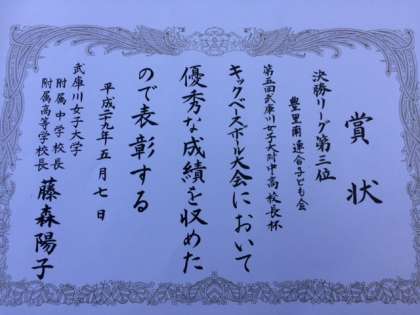 賞状
決勝リーグ第三位
豊里南連合子ども会
第五回武庫川女子大附中高校長杯
キックベースボール大会において
優秀な成績を収めた
ので表彰する
平成二九年五月七日
武庫川女子大学
附属中学校長
附属高等学校長
藤森陽子